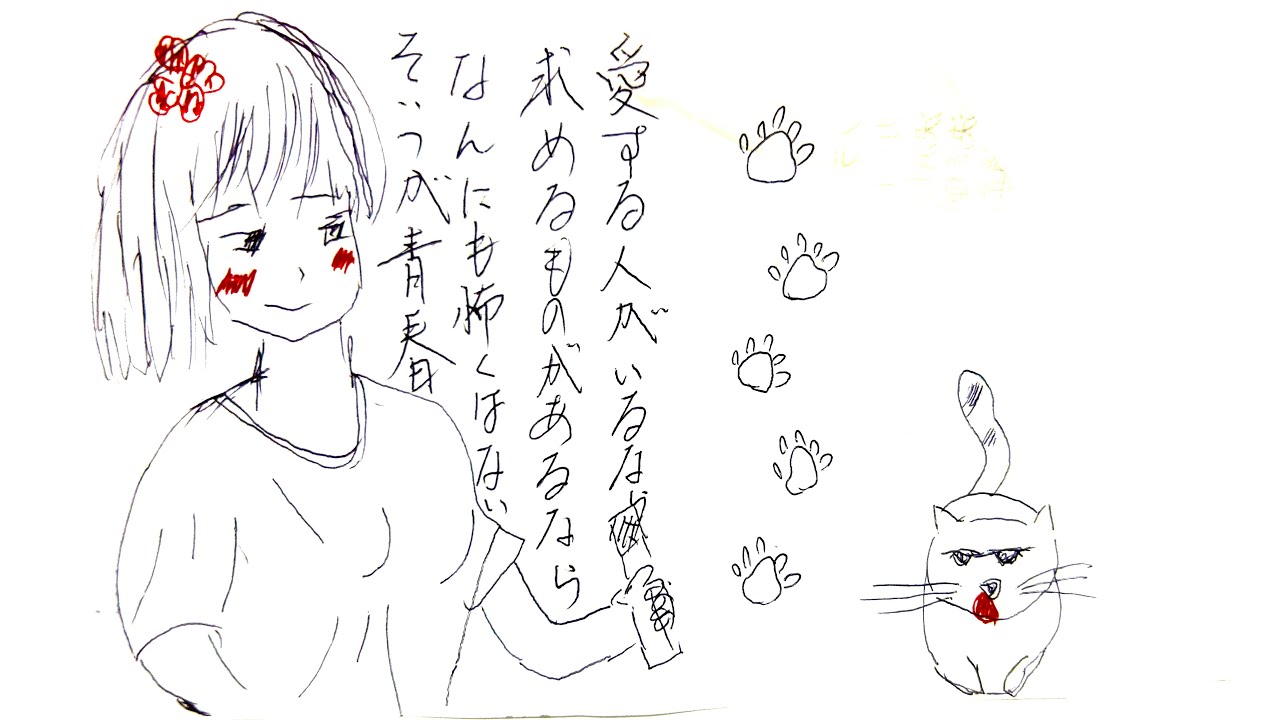 愛する人がいるな
求めるものがあるなら
なんにも怖くはない
そいつが青春